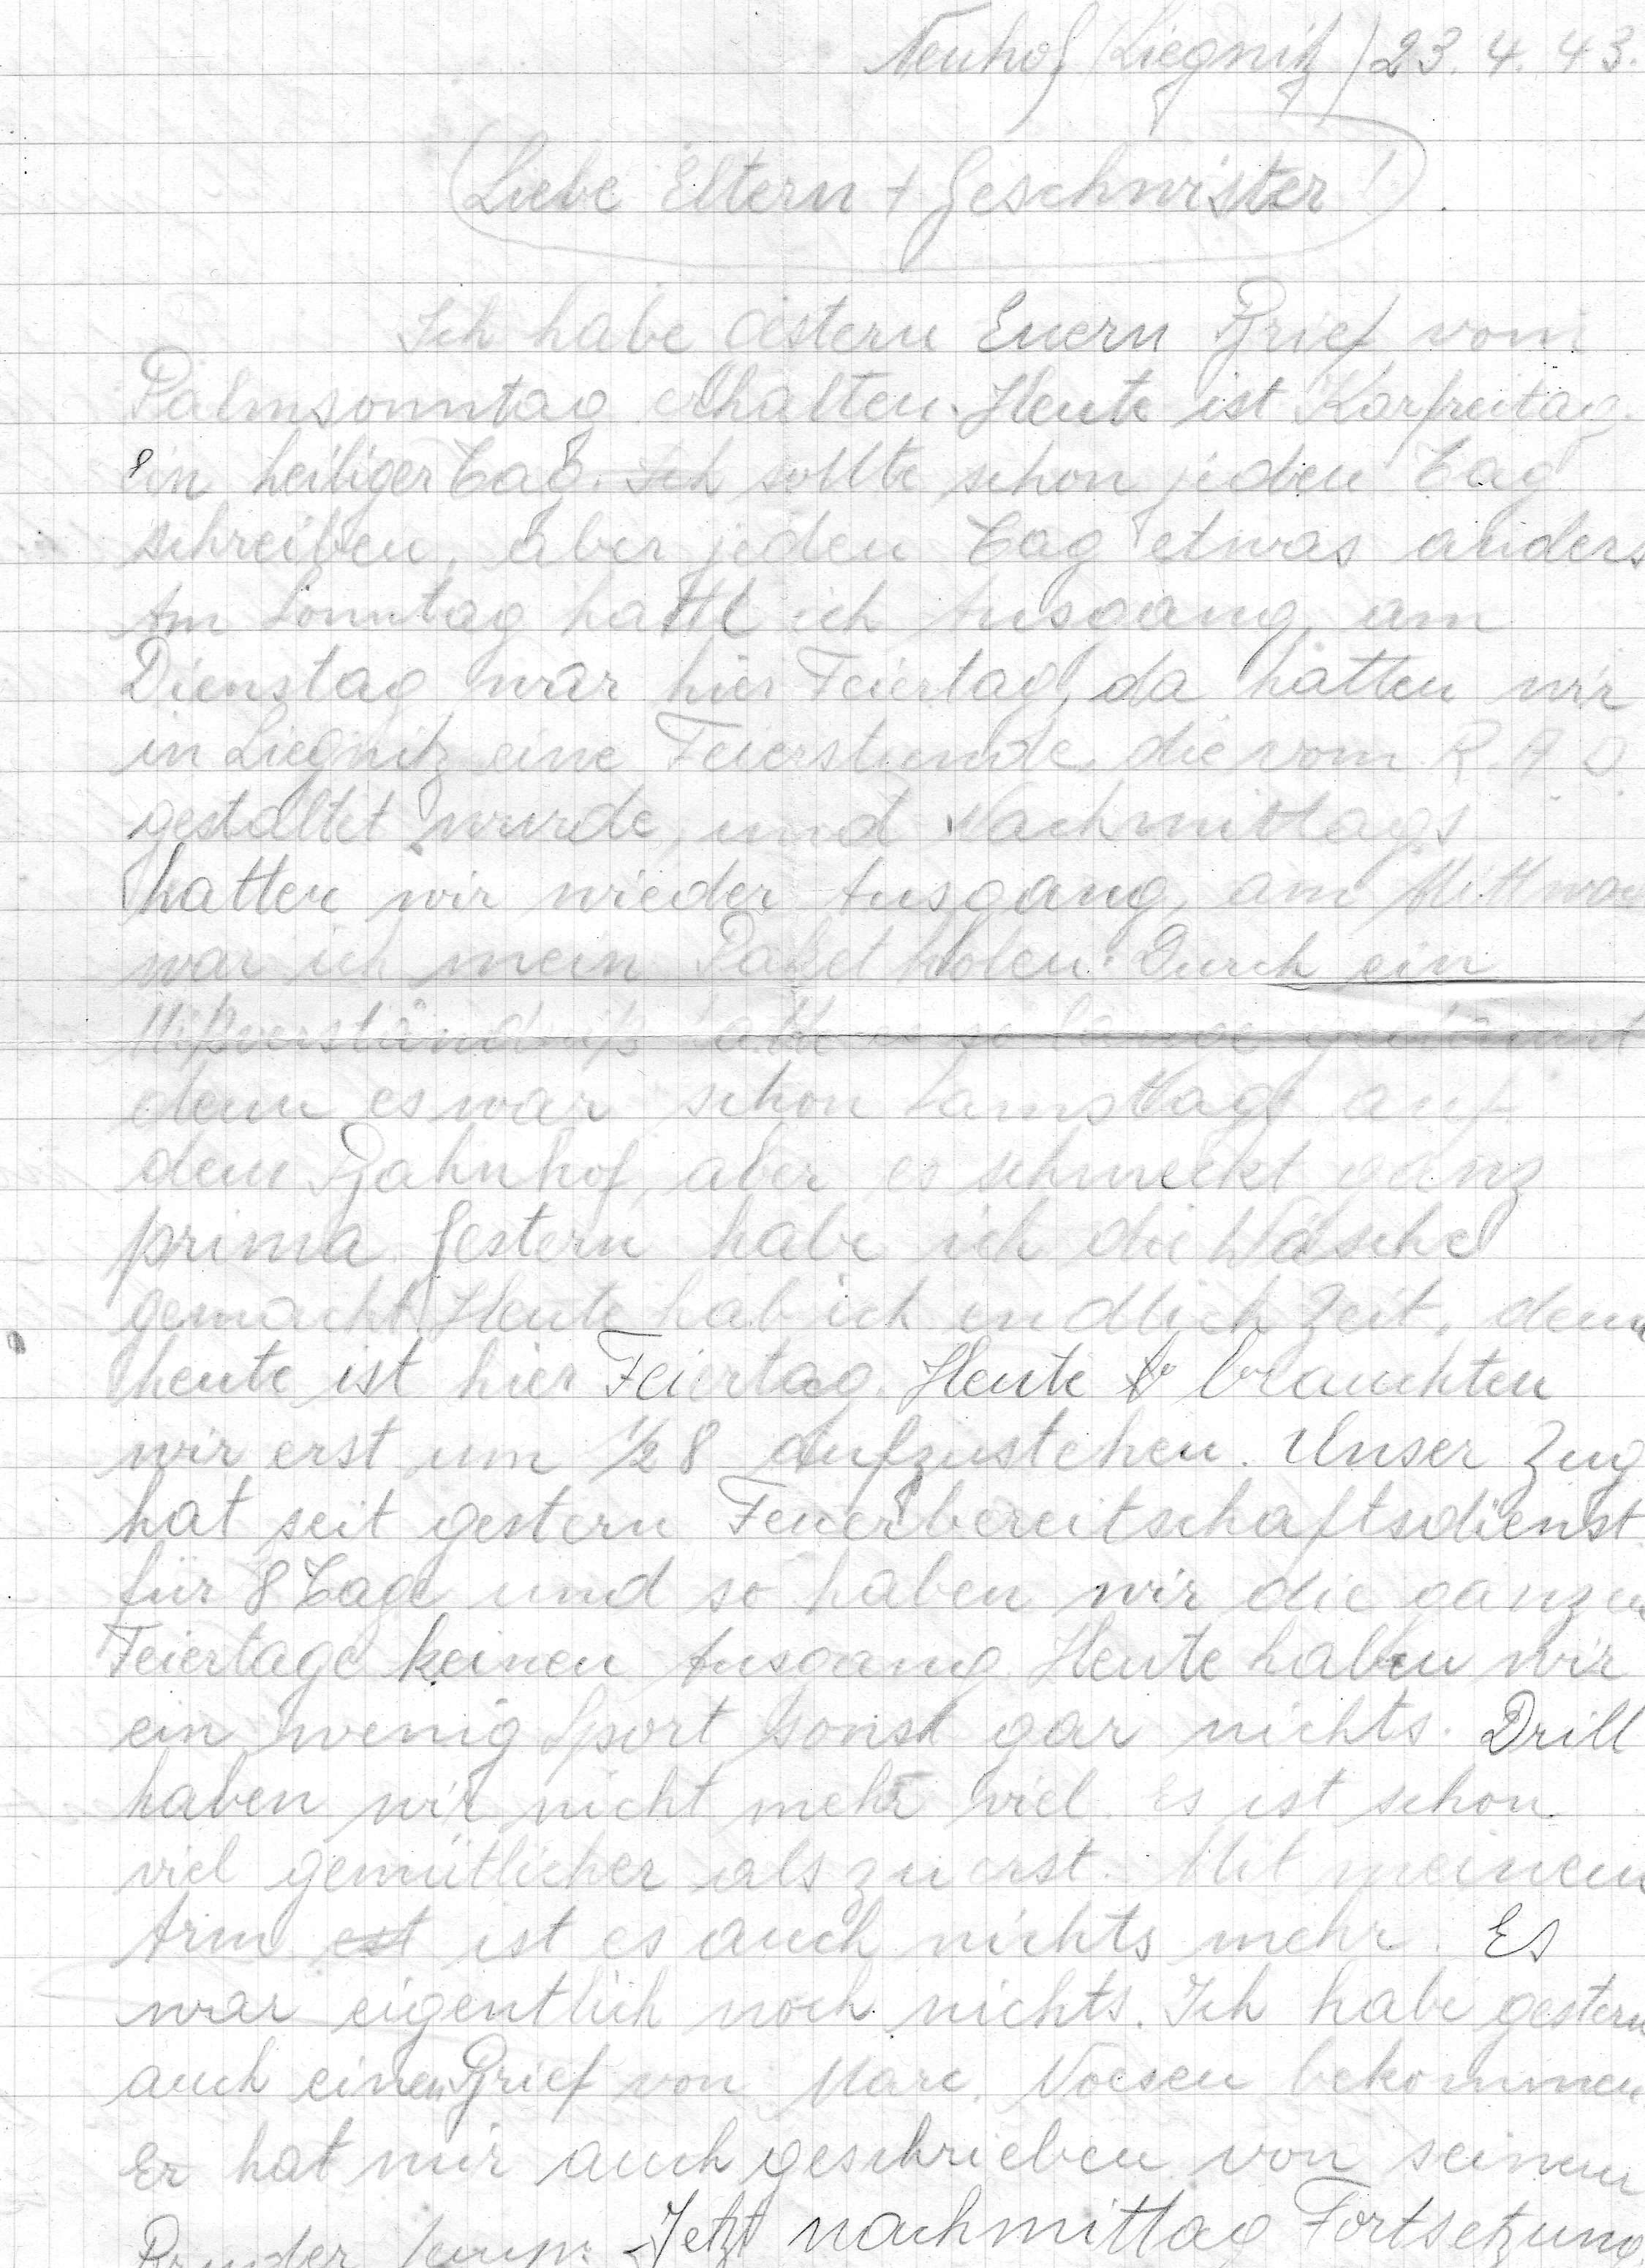 Neuhof (Liegnitz) 23. 4. 43.
Liebe Eltern + Geschwister!
Ich habe gestern Euern Brief vom
Palmsonntag erhalten. Heute ist Karfreitag.
ein heiliger Tag. Ich sollte schon jeden Tag
schreiben, aber jeden Tag etwas anders
Am Sonntag hatte ich Ausgang, am
Dienstag war hier Feiertag, da hatten wir
in Liegnitz eine Feierstunde, die vom R.A.D.
gestaltet wurde, und Nachmittags
hatten wir wieder Ausgang, am Mittwoc
war ich mein Paket holen. Durch ein
Mißverständniß hatte es so lange
denn es war schon Samstags auf
dem Bahnhof, aber es schmeckt ganz
prima. Gestern habe ich die Wäsche
gemacht. Heute hab ich endlich Zeit, denn
heute ist hier Feiertag. Heute brauchten
wir erst um 1/2 8 aufzustehen. Unser Zug
hat seit gestern Feuerbereitschaftsdienst
für 8 Tage und so haben wir die ganzen
Feiertage keinen Ausgang. Heute haben wir
ein wenig Sport sonst gar nichts. Drill
haben wir nicht mehr viel. Es ist schon
viel gemütlicher als zuerst. Mit meinem
Arm est ist es auch nichts mehr. Es
war eigentlich noch nichts. Ich habe gestern
auch einen Brief von Marc. Noesen bekommen
Er hat mir auch geschrieben von seinem
Bruder Jetzt nachmittag Fortsetzung